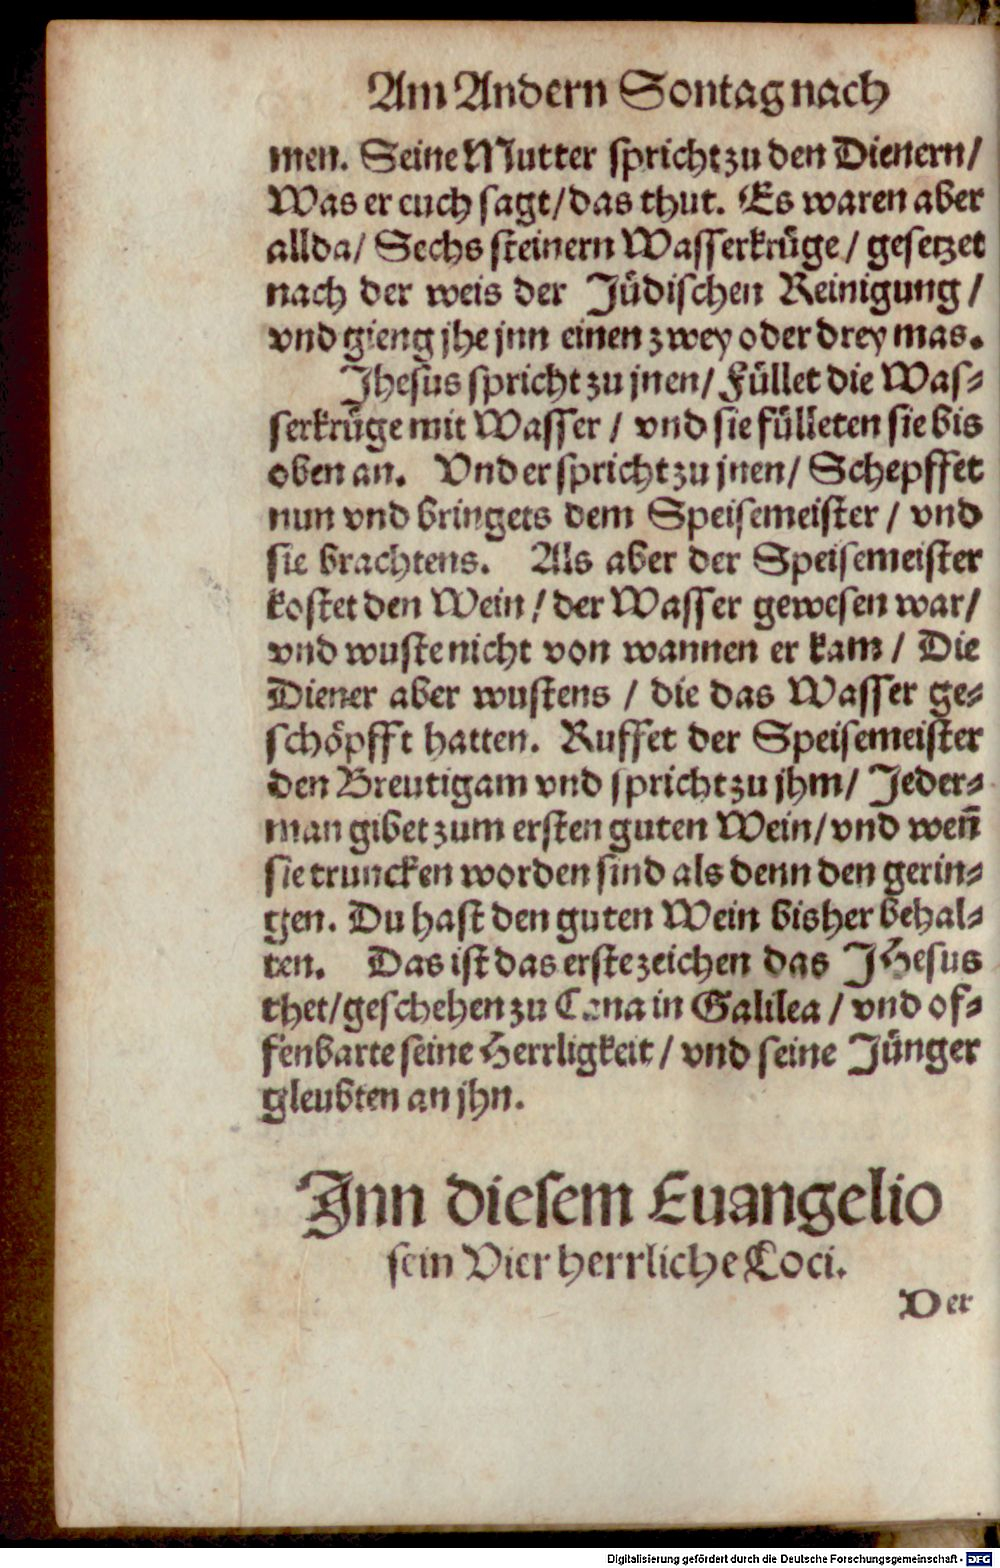 Am Andern Sontag nach
men. Seine Mutter spricht zu den Dienern/
Was er euch sagt/ das thut. Es waren aber
allda/ Sechs steinern Wasserkrüge/ gesetzet
nach der weis der Jüdischen Reinigung/
vnd gieng jhe jnn einen zwey oder drey mas.
Jhesus spricht zu jnen/ Füllet die Was⸗
serkrüge mit Wasser/ vnd sie fülleten sie bis
oben an. Vnd er spricht zu jnen/ Schepffet
nun vnd bringets dem Speisemeister/ vnd
sie brachtens. Als aber der Speisemeister
kostet den Wein/ der Wasser gewesen war/
vnd wuste nicht von wannen er kam/ Die
Diener aber wustens/ die das Wasser ge⸗
schöpfft hatten. Ruffet der Speisemeister
den Breutigam vnd spricht zu jhm/ Jeder⸗
man gibet zum ersten guten Wein/ vnd weñ
sie truncken worden sind als denn den gerin⸗
gen. Du hast den guten Wein bisher behal⸗
ten. Das ist das erste zeichen das JHesus
thet/ geschehen zu Cana in Galilea/ vnd of⸗
fenbarte seine Herrligkeit/ vnd seine Jünger
gleubten an jhn.
Jnn diesem Euangelio
sein Vier herrliche Loci.
Der
Digitalisierung gefördert durch die Deutsche Forschungsgemeinschaft - DFG